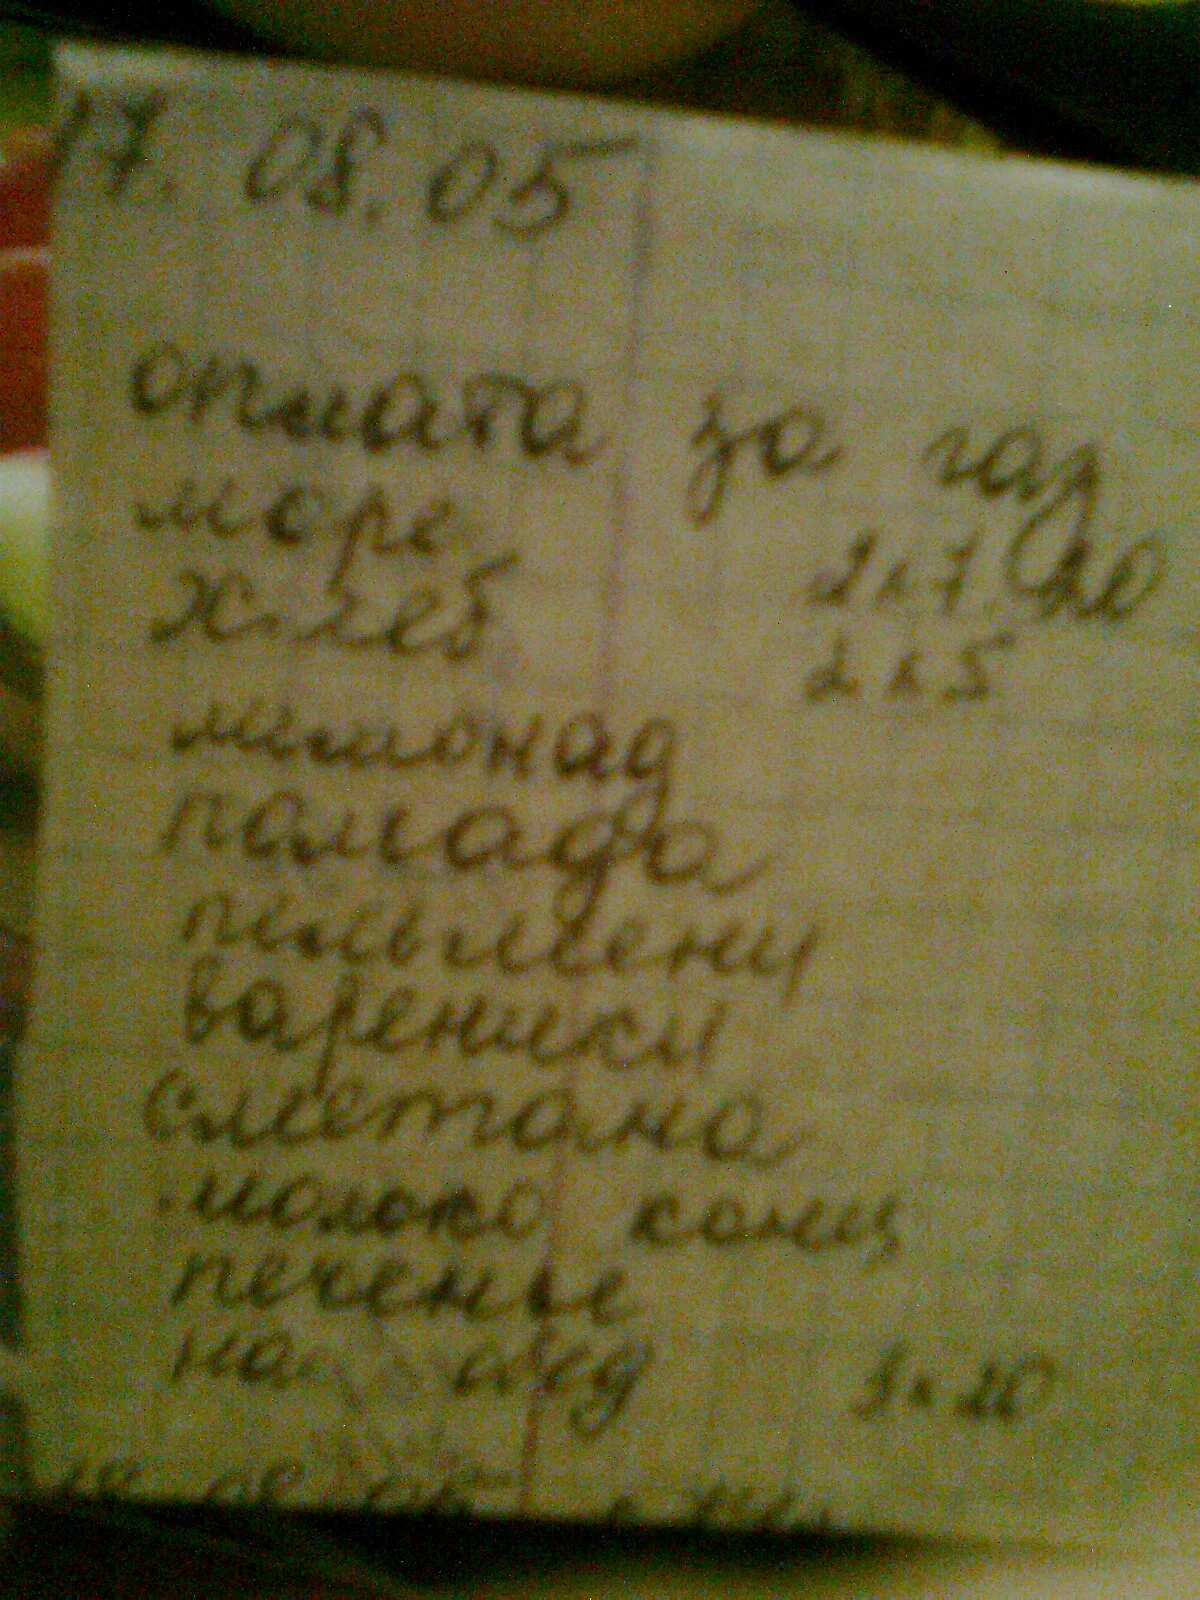 17. 08. 05
оплата за газ
море 2x7
хлеб 2x5
лимонад
памада
пельмени
вареники
сметана
молоко конц
печенье
на